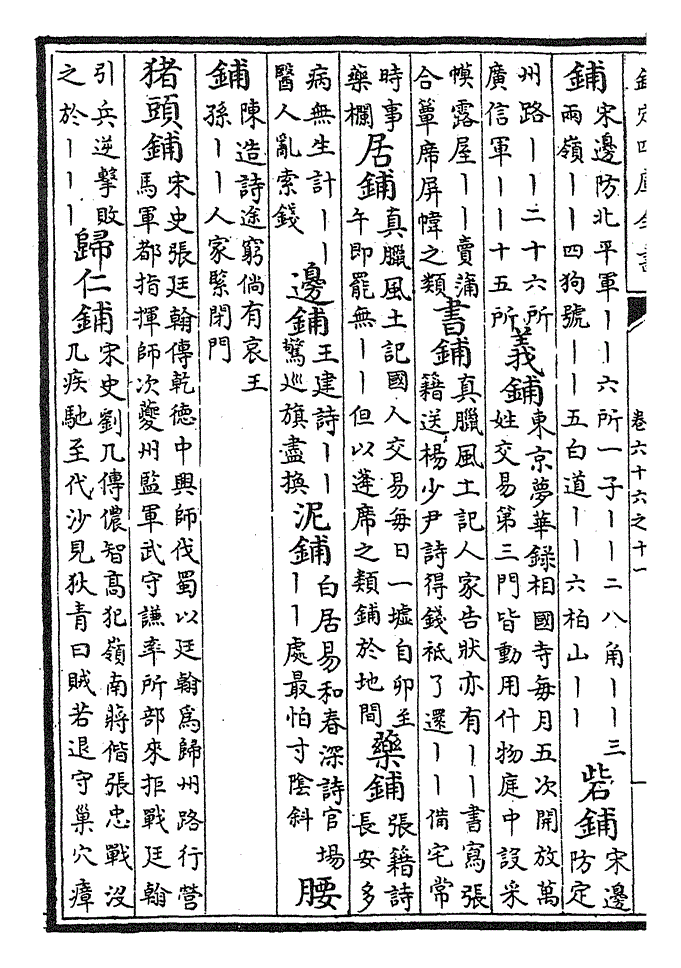 欽定四庫全書
卷六十六之十一
鋪
宋邊防北平軍丨丨六所一子丨丨二八角丨丨三
兩嶺丨丨四狗號丨丨五白道丨丨六柏山丨丨
砦鋪
宋邊
防定
州路丨丨二十六所
廣信軍丨丨十五所
義鋪
東京夢華錄相國寺每月五次開放萬
姓交易第三門皆動用什物庭中設采
幙露屋丨丨賣蒲
合簟席屏幃之類
書鋪
真臘風土記人家告狀亦有丨丨書寫張
籍送楊少尹詩得錢祗了還丨丨備宅常
時事
藥欄
居鋪
真臘風土記國人交易每日一墟自卯至
午即罷無丨丨但以蓬席之類鋪於地間
藥鋪
張籍詩
長安多
病無生計丨丨
醫人亂索錢
邊鋪
王建詩丨丨
驚巡旗盡換
泥鋪
白居易和春深詩官場
丨丨處最怕寸陰斜
腰
鋪
陳造詩途窮倘有哀王
孫丨丨人家緊閉門
猪頭鋪
宋史張廷翰傳乾德中興師伐蜀以廷翰為歸州路行營
馬軍都指揮師次夔州監軍武守謙率所部來拒戰廷翰
引兵逆擊敗
之於丨丨丨
歸仁鋪
宋史劉几傳儂智高犯嶺南蔣偕張忠戰沒
几疾馳至代沙見狄青曰賊若退守巢穴瘴